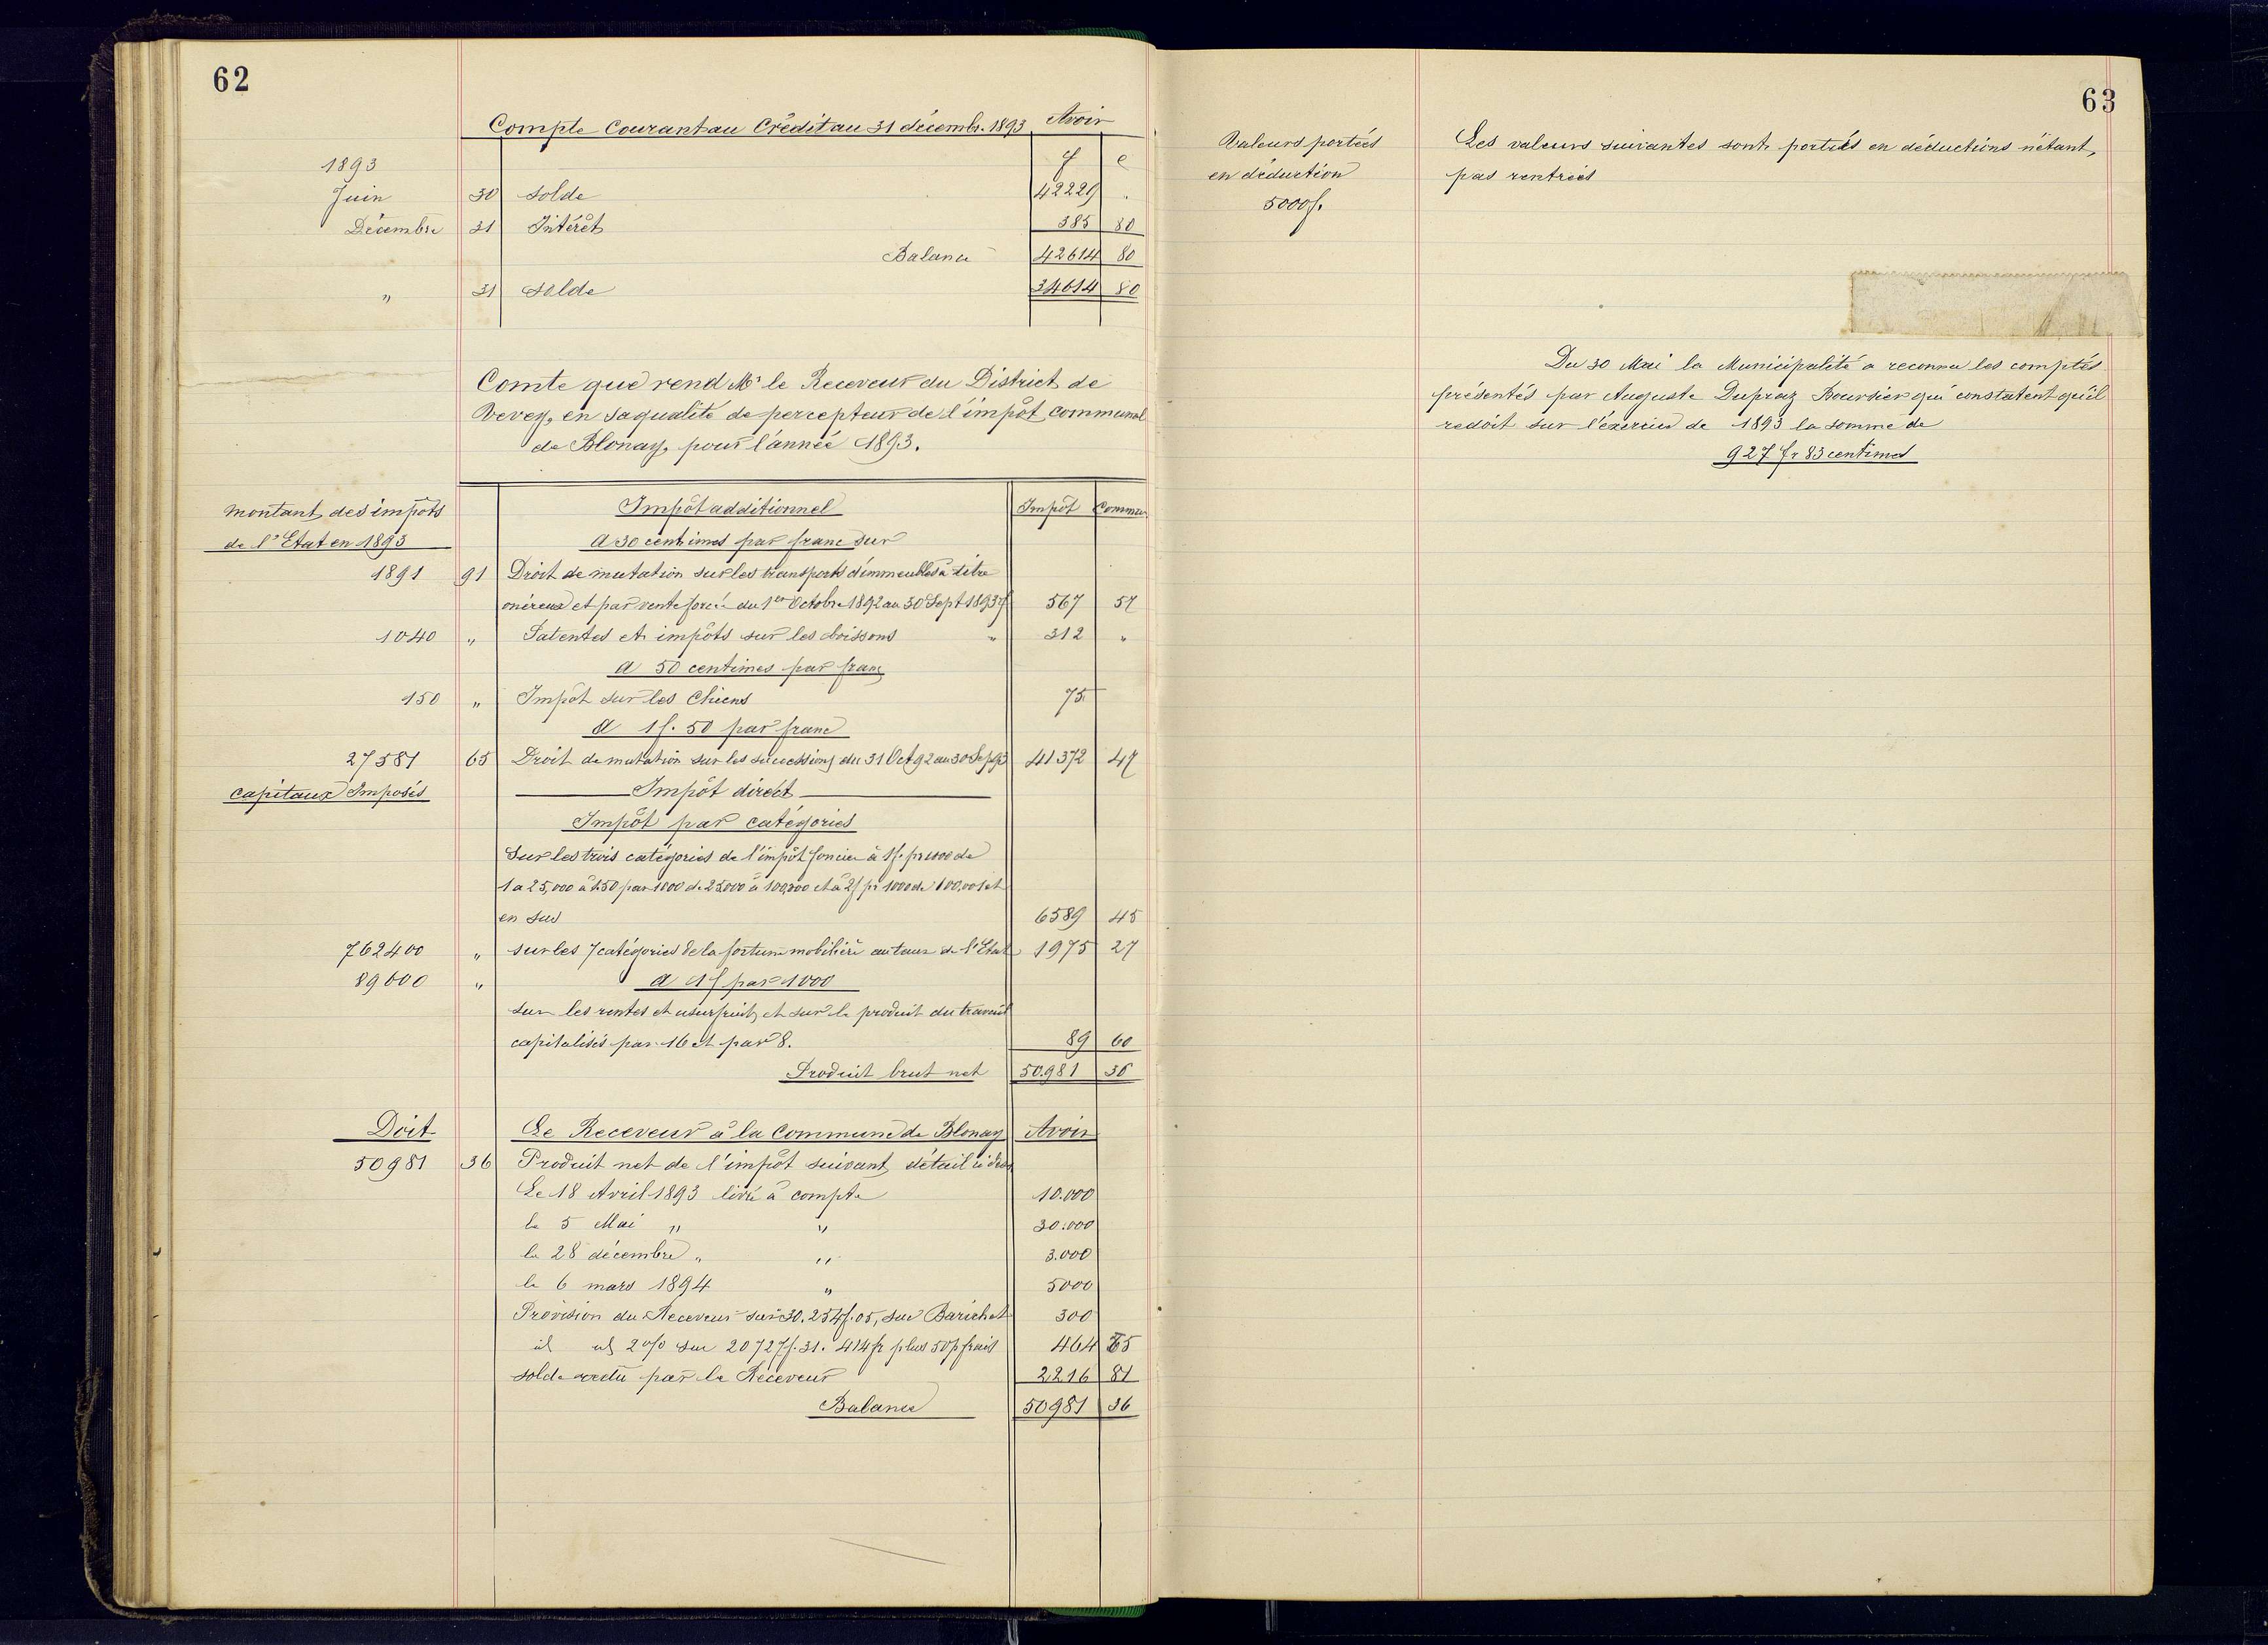 62
Compte Courant au Crédit au 31 décemb. 1893 Avoir
f c
1893
Juin 30 Solde 42229 .
Décembre 31 Intérêt 385 80
Balance 42614 80
" 31 Solde 34614 80
Comte que rend Mr le Receveur du District de
Vevey, en sa qualité de percepteur de l'impôt communal
de Blonay, pour l'année 1893.
montant des impôts
de l'Etat en 1893
Impôt additionnel Impôt Commun
A 30 centimes par franc sur
1891 91 Droit de mutation sur les transports d'immeubles à titre
onéreux et par vente forcée du 1er Octobre 1892 au 30 Sept 1893 f 567 57
1040 " Patentes et impôts sur les boissons " 312 "
A 50 centimes par franc
150 " Impôt sur les Chiens 75
A 1 f. 50 par franc
27581 65 Droit de mutation sur les successions du 31 Oct 92 au 30 Sep 93 41372 47
Capitaux Imposés
Impôt direct
Impôt par catégories
Sur les trois catégories de l'impôt foncier à 1 f. pr 1000 de
1 a 25,000 à 1.50 par 1000 de 25000 à 100,000 et à 2 f pr 1000 de 100,001 et
en sus 6589 45
762400 " sur les 7 catégories de la fortune mobilière au taux de l'Etat 1975 27
89600 " A 1 f par 1000
sur les rentes et usufruits et sur le produit du travail
capitalisés par 16 et par 8. 89 60
Produit brut net 50.981 36
Doit Le Receveur à la Commune de Blonay Avoir
50981 36 Produit net de l'impôt suivant détail ci dess
Le 18 Avril 1893 livré à compte 10.000
le 5 Mai " " 30.000
le 28 décembre " " 3.000
le 6 mars 1894 " 5000
Provision du Receveur sur 30.254 f. 05, sur Barichet 300
id id 2 % sur 20727 f. 31. 414 fr plus 50 p frais 464 55
solde redu par le Receveur 2216 81
Balance 50981 36
63
Valeurs portées
en déduction
5000 f.
Les valeurs suivantes sont portées en déductions n'étant,
pas rentrées
Du 30 Mai la Municipalité a reconnu les comptes
présentés par Auguste Dupraz Boursier qui constatent qu'il
redoit sur l'exercice de 1893 la somme de
927 fr 83 centimes